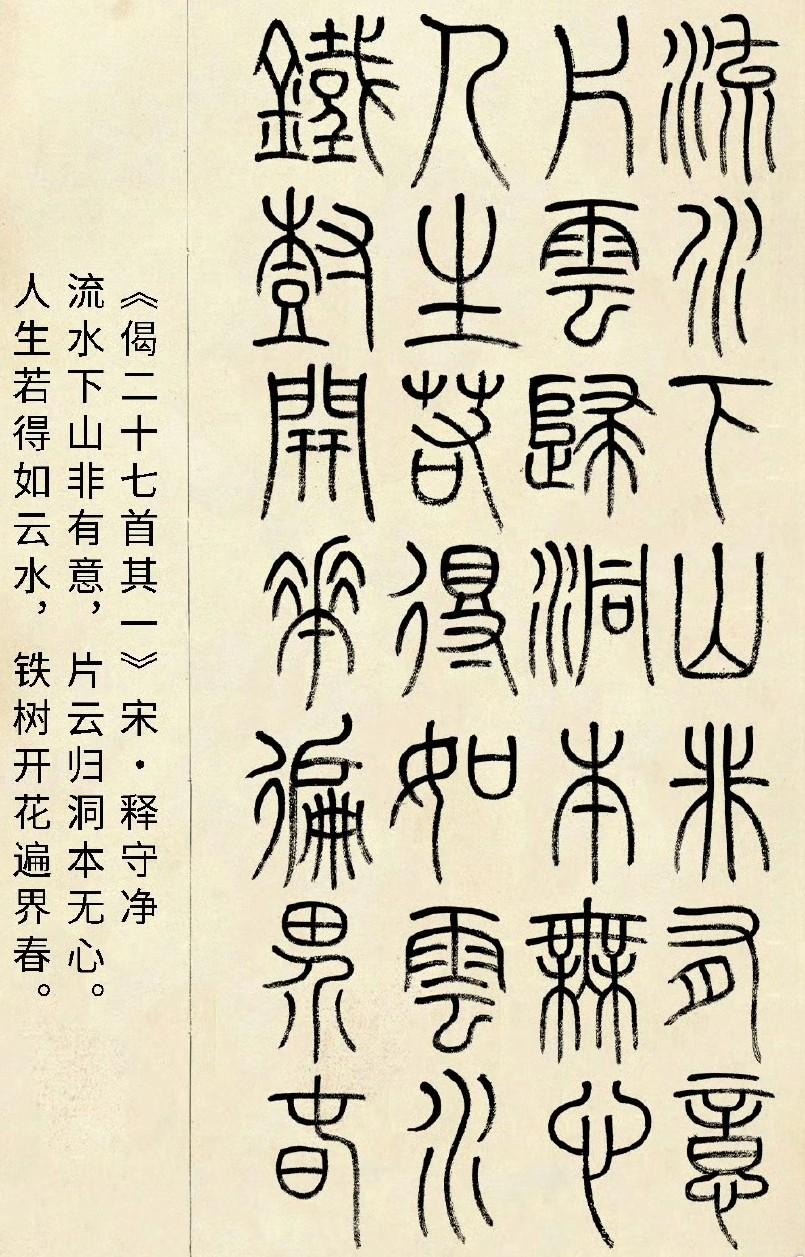 流水下山非有意
片雲歸洞本無心
人生若得如雲水
鐵樹開花徧界春
《偈二十七首其一》宋·释守净
流水下山非有意，片云归洞本无心。
人生若得如云水，铁树开花遍界春。